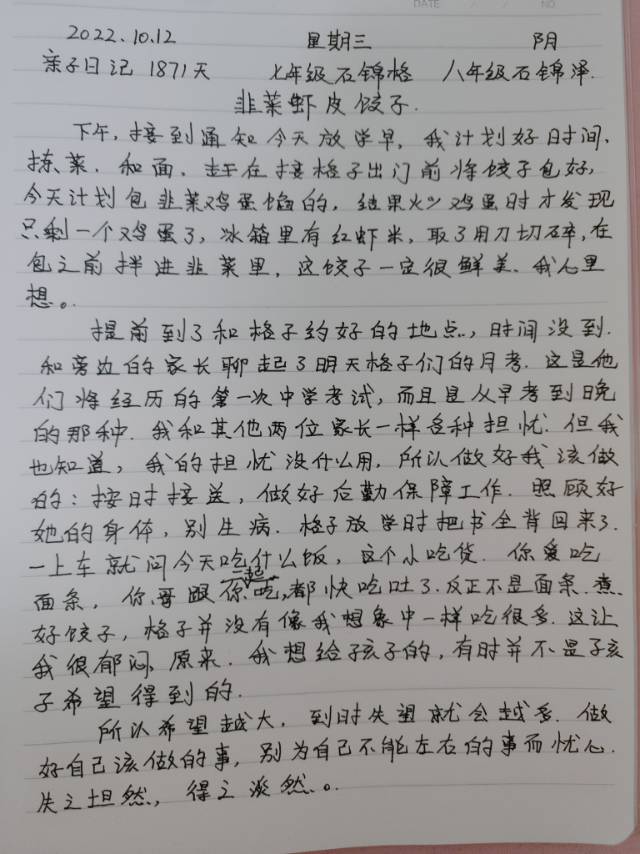 DATE / / NO
2022.10.12 星期三 阴
亲子日记 1871天 七年级石锦格 八年级石锦泽.
韭菜虾皮饺子.
下午,接到通知今天放学早,我计划好时间、
拣菜.和面.赶在接格子出门前将饺子包好,
今天计划包韭菜鸡蛋馅的,结果火鸡蛋时才发现
只剩一个鸡蛋了,冰箱里有红虾米,取了用刀切碎,在
包之前拌进韭菜里,这饺子一定很鲜美.我心里
想。
提前到了和格子约好的地点,时间没到.
和旁边的家长聊起了明天格子们的月考.这是他
们将经历的第一次中学考试,而且是从早考到晚
的那种.我和其他两位家长一样各种担忧.但我
也知道,我的担忧没什么用.所以做好我该做
的:按时接送,做好后勤保障工作.照顾好
她的身体,别生病.格子放学时把书全背回来了.
一上车就问今天吃什么饭,这个小吃货.你爱吃
面条,你哥跟你一起吃,都快吃吐了.反正不是面条.煮
好饺子,格子并没有像我想象中一样吃很多.这让
我很郁闷.原来.我想给孩子的,有时并不是孩
子希望得到的.
所以希望越大,到时失望就会越多.做
好自己该做的事,别为自己不能左右的事而忧心.
失之坦然,得之淡然。.